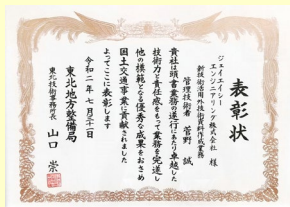 表彰状
ジェイエイシー
エンジニアリング株式会社 様
新技術活用外技術資料作成業務
管理技術者 菅野 誠
貴社は頭書業務の遂行にあたり卓越した
技術力と責任感をもって業務を完遂し
他の模範となる優秀な成果をおさめ
国土交通事業に貢献されました
よってここに表彰します
令和二年 七月二十一日
東北地方整備局
東北技術事務所長 山口 崇